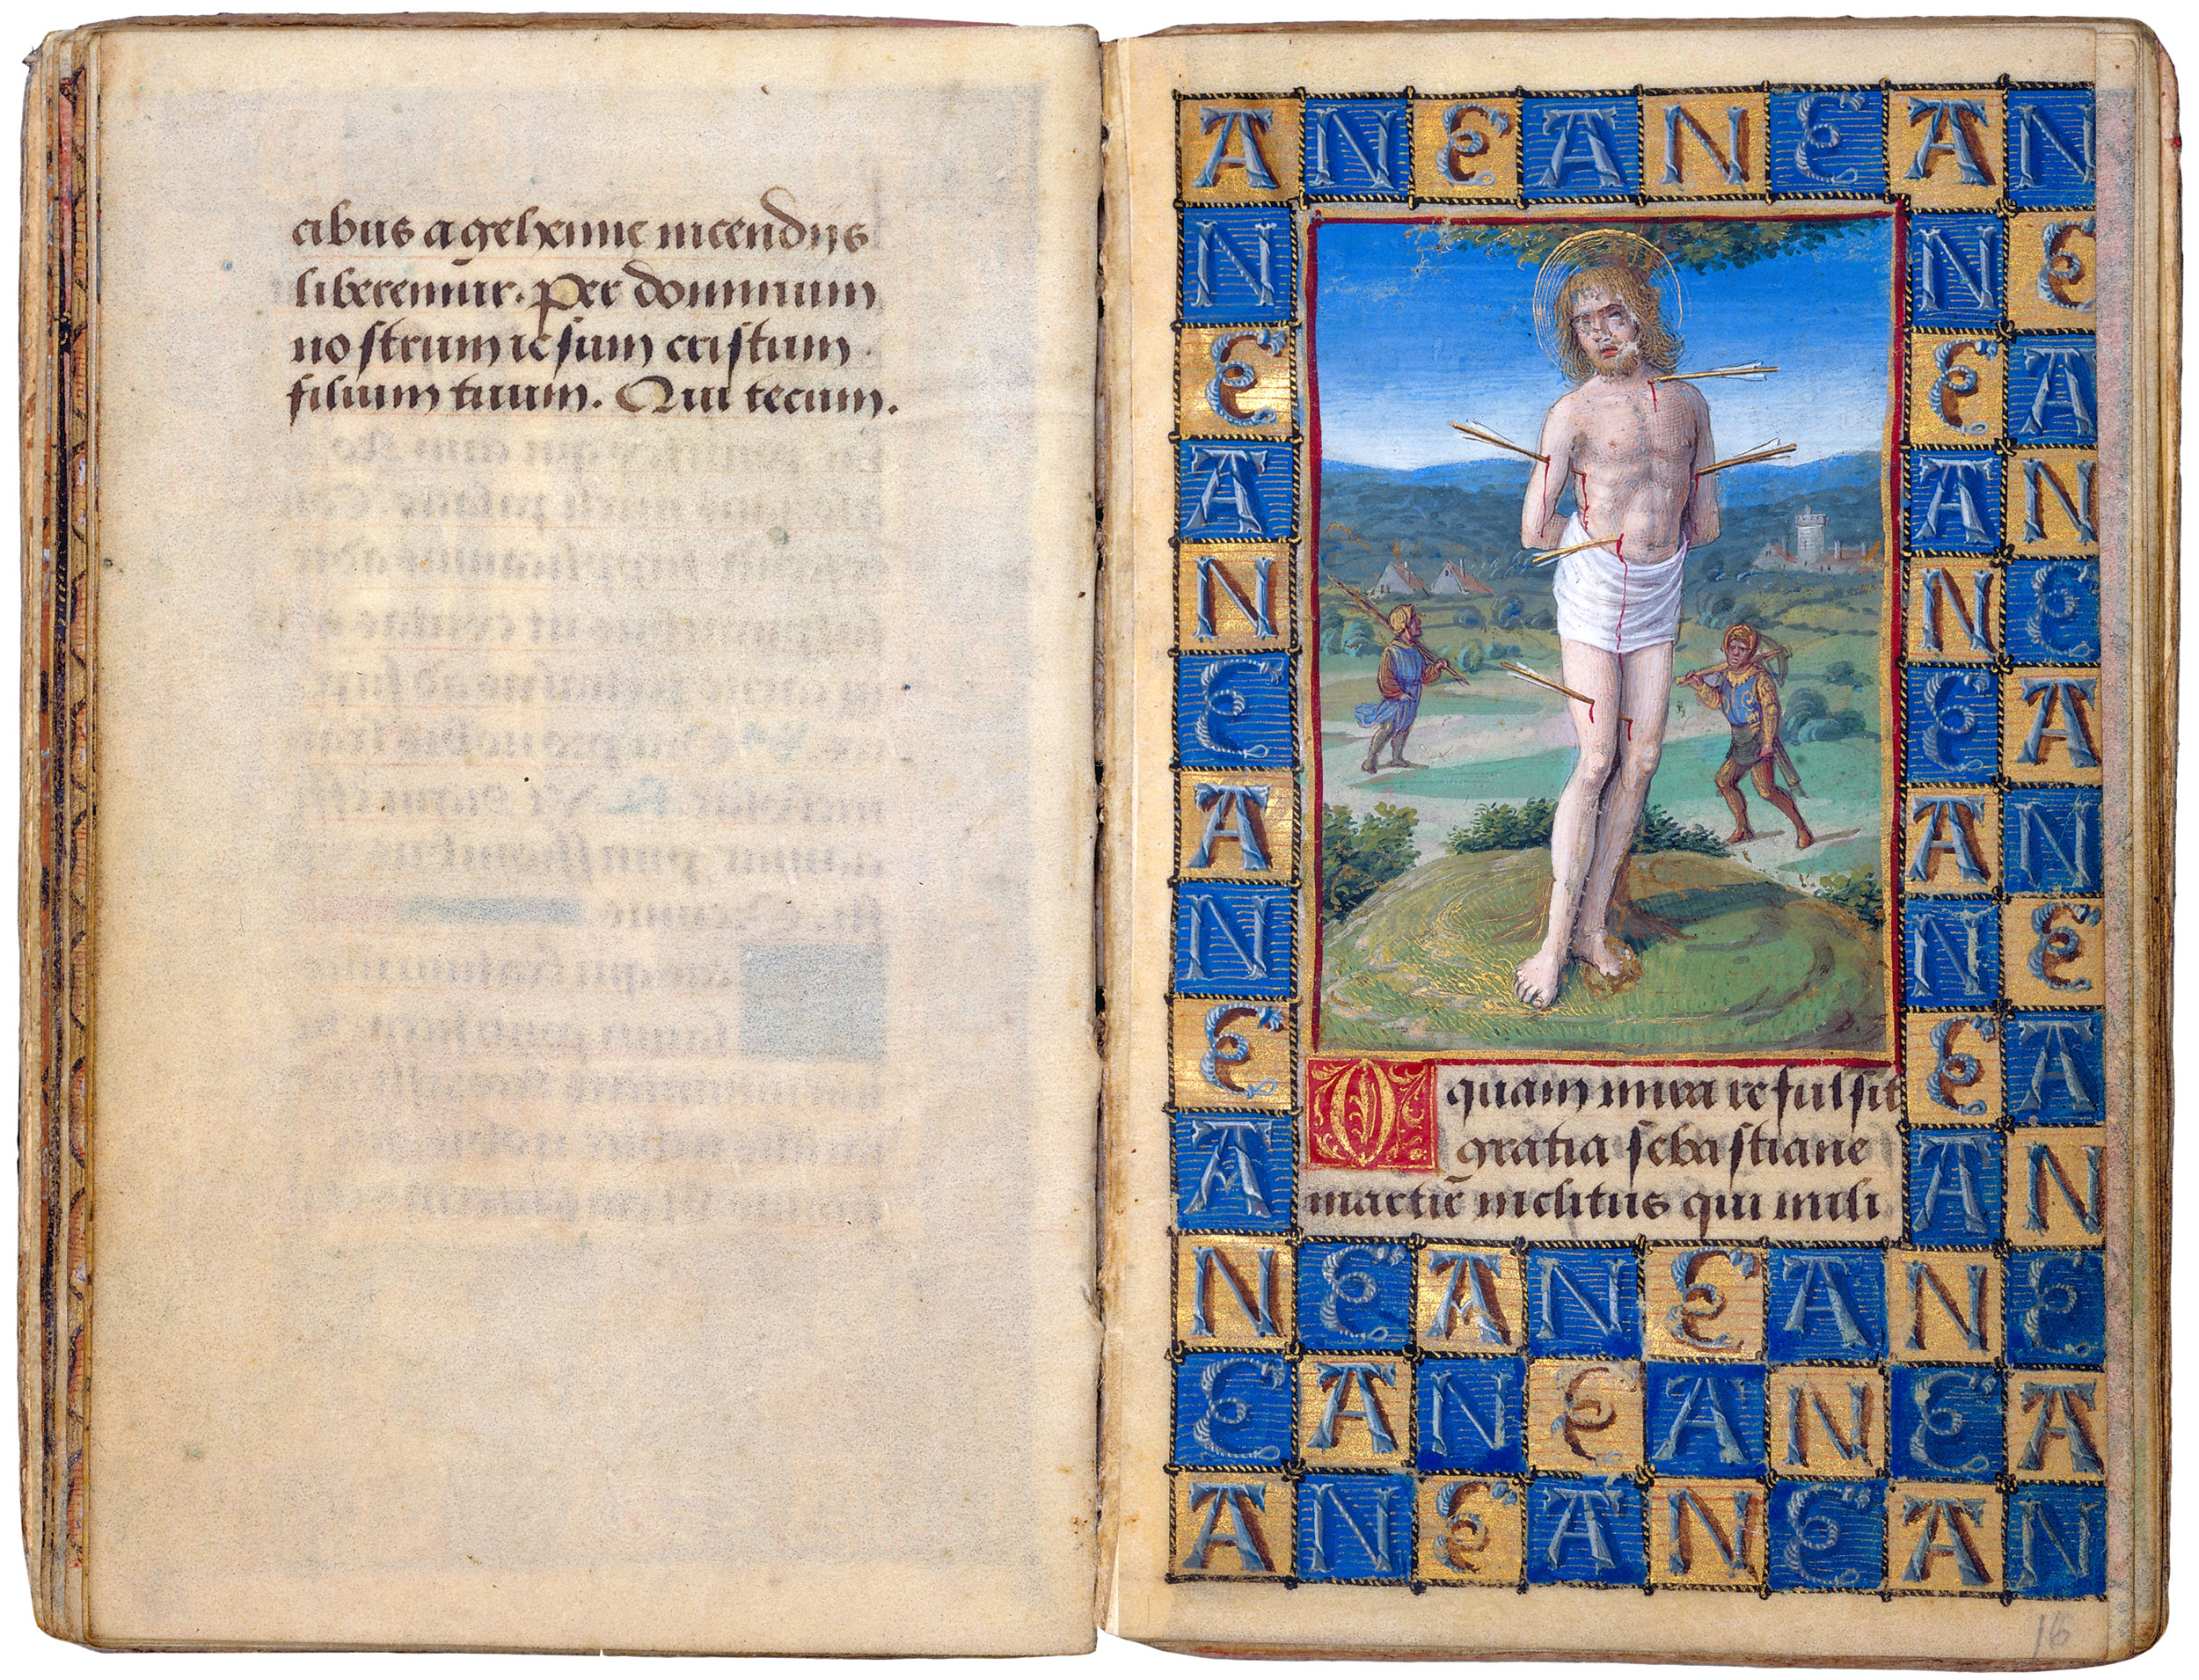 cibus a gehenne incendijs
liberemur. Per dominum
nostrum iesum cristum
filium tuum. Qui tecum.
A N E A N E A N
N N E
E E A
A A N
N N E
E E A
A A N
N N E
E E A
A A N
O quam mira refulsit
gratia sebastiane
martir̃ inclitus qui mili
N E A N E A N E
E A N E A N E A
A N E A N E A N
16